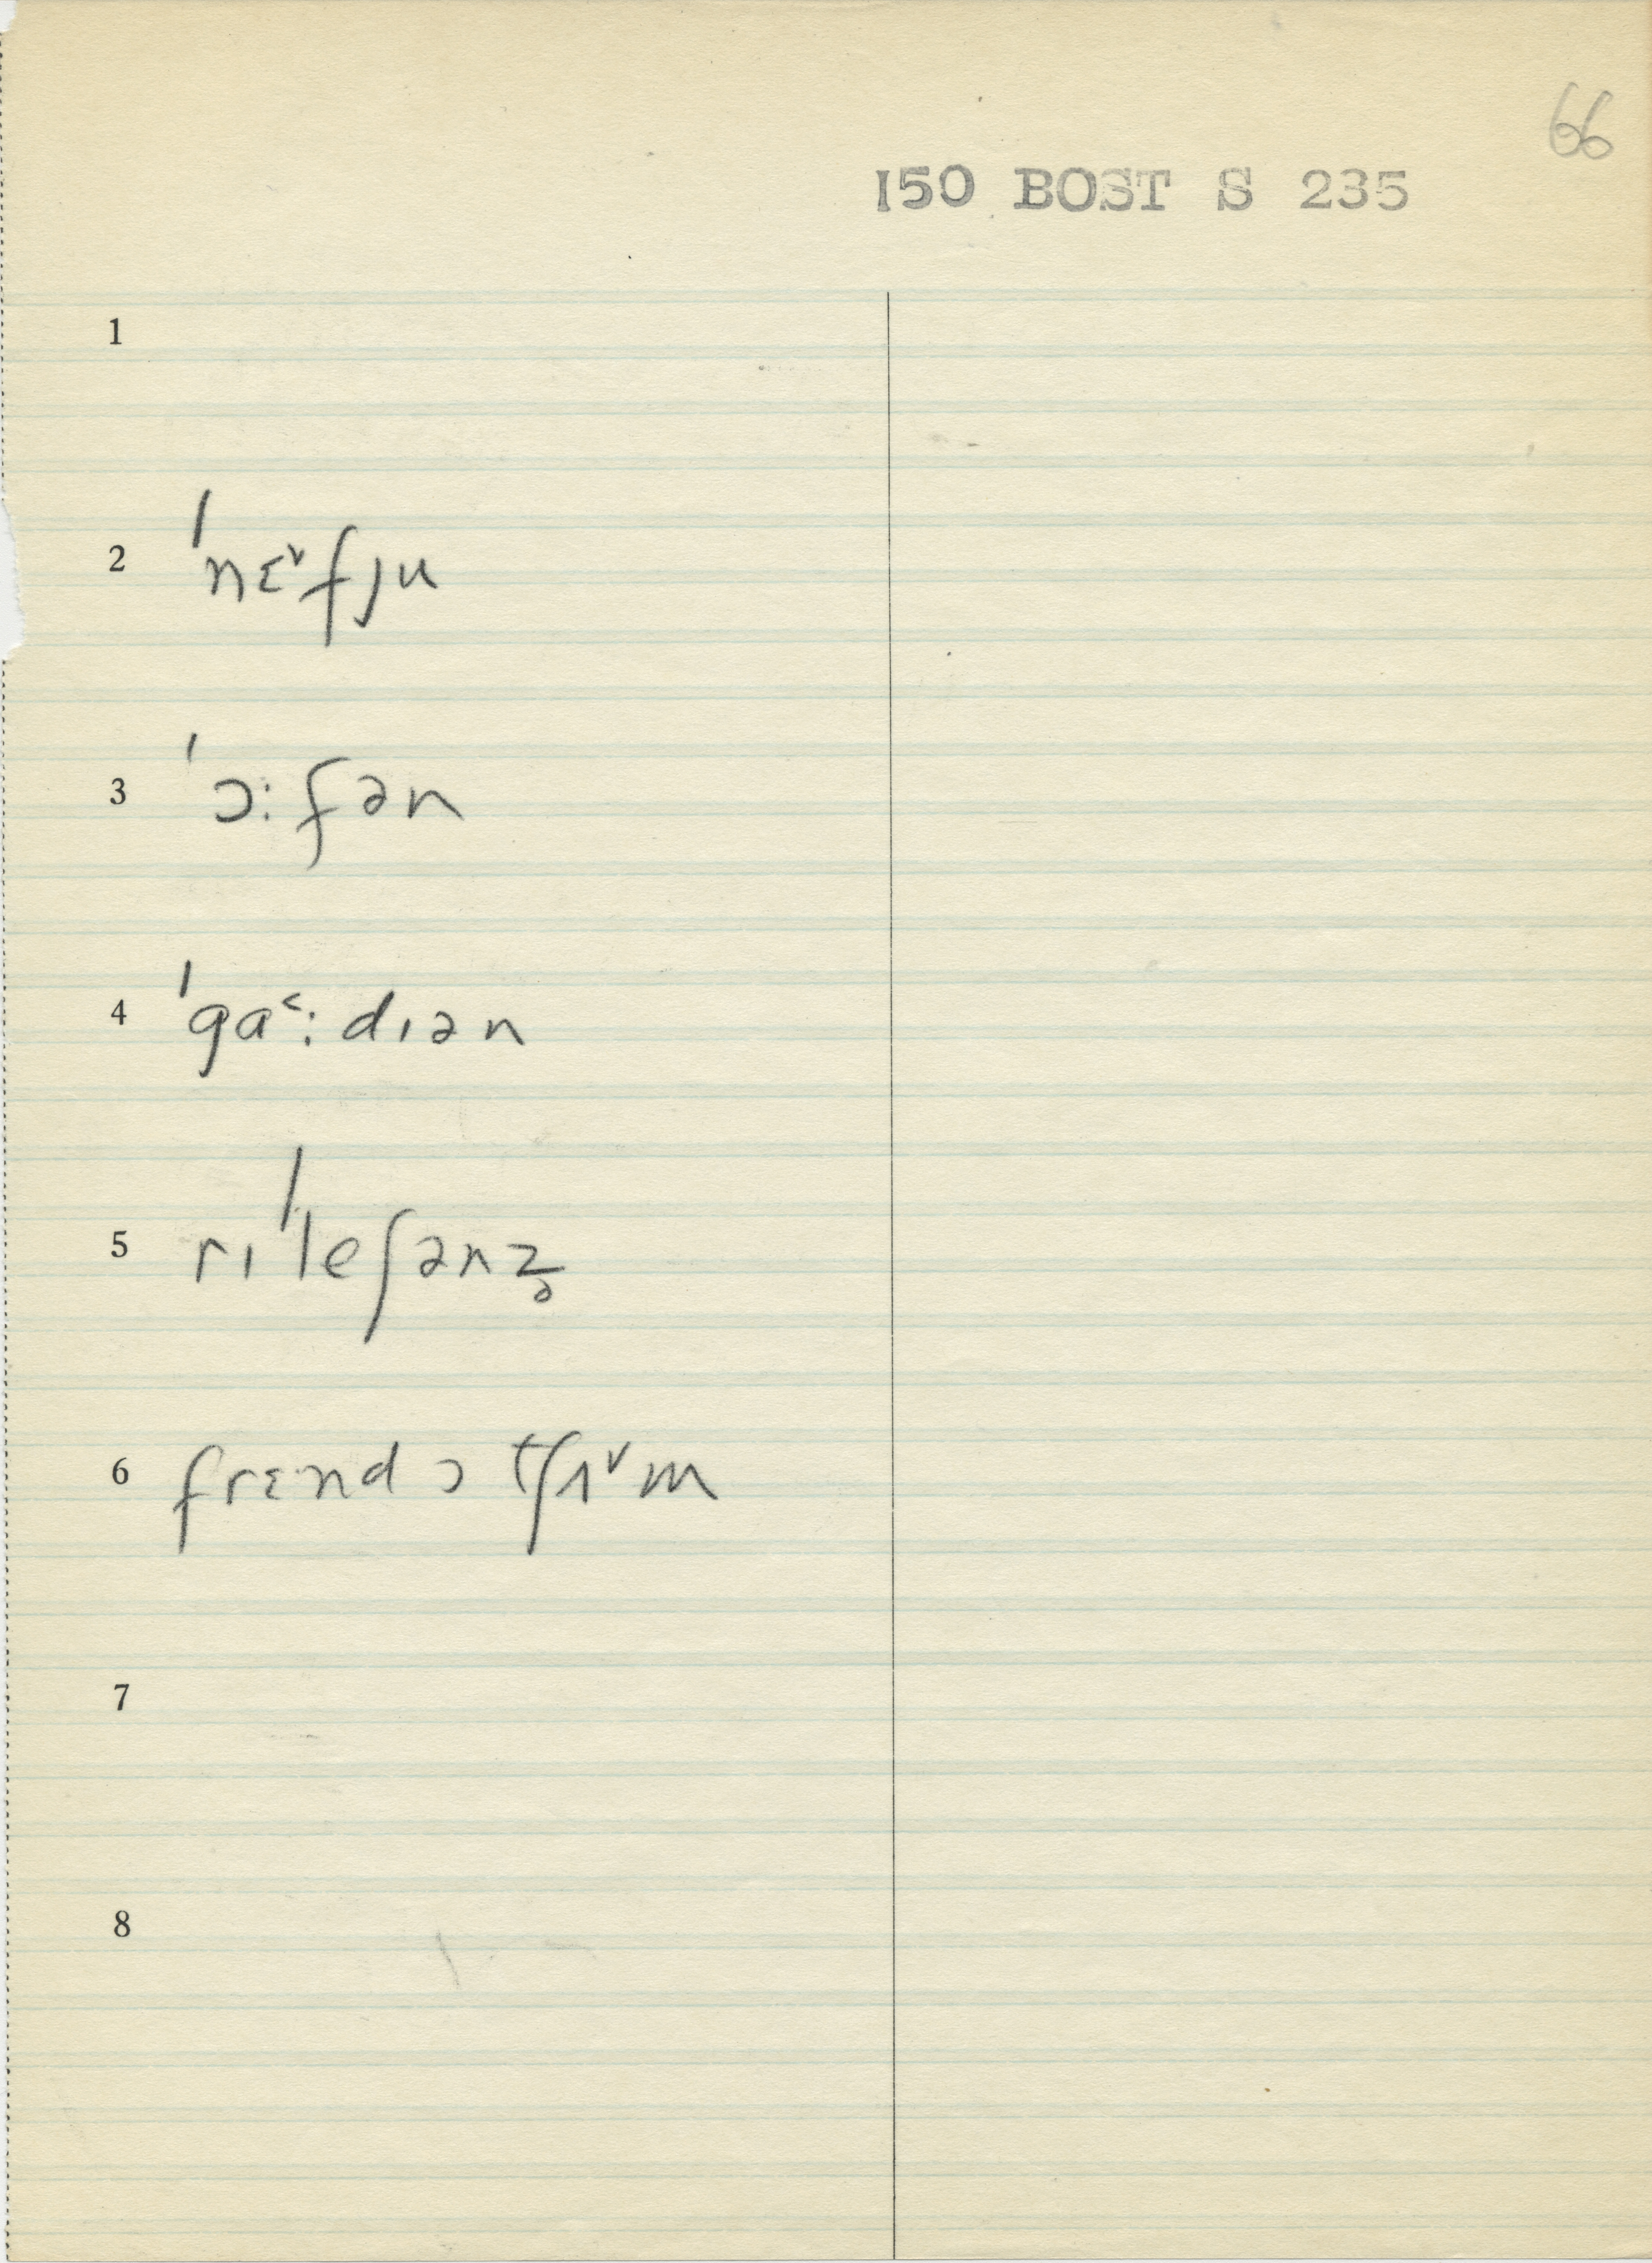 66
150 BOST S 235
1
2 ˈnɛ˅fju
3 ˈɔ:fən
4 ˈga˂:dɪən
5 rɪˈleʃənz̥
6 frɛnd ɔ tʃʌ˅m
7
8